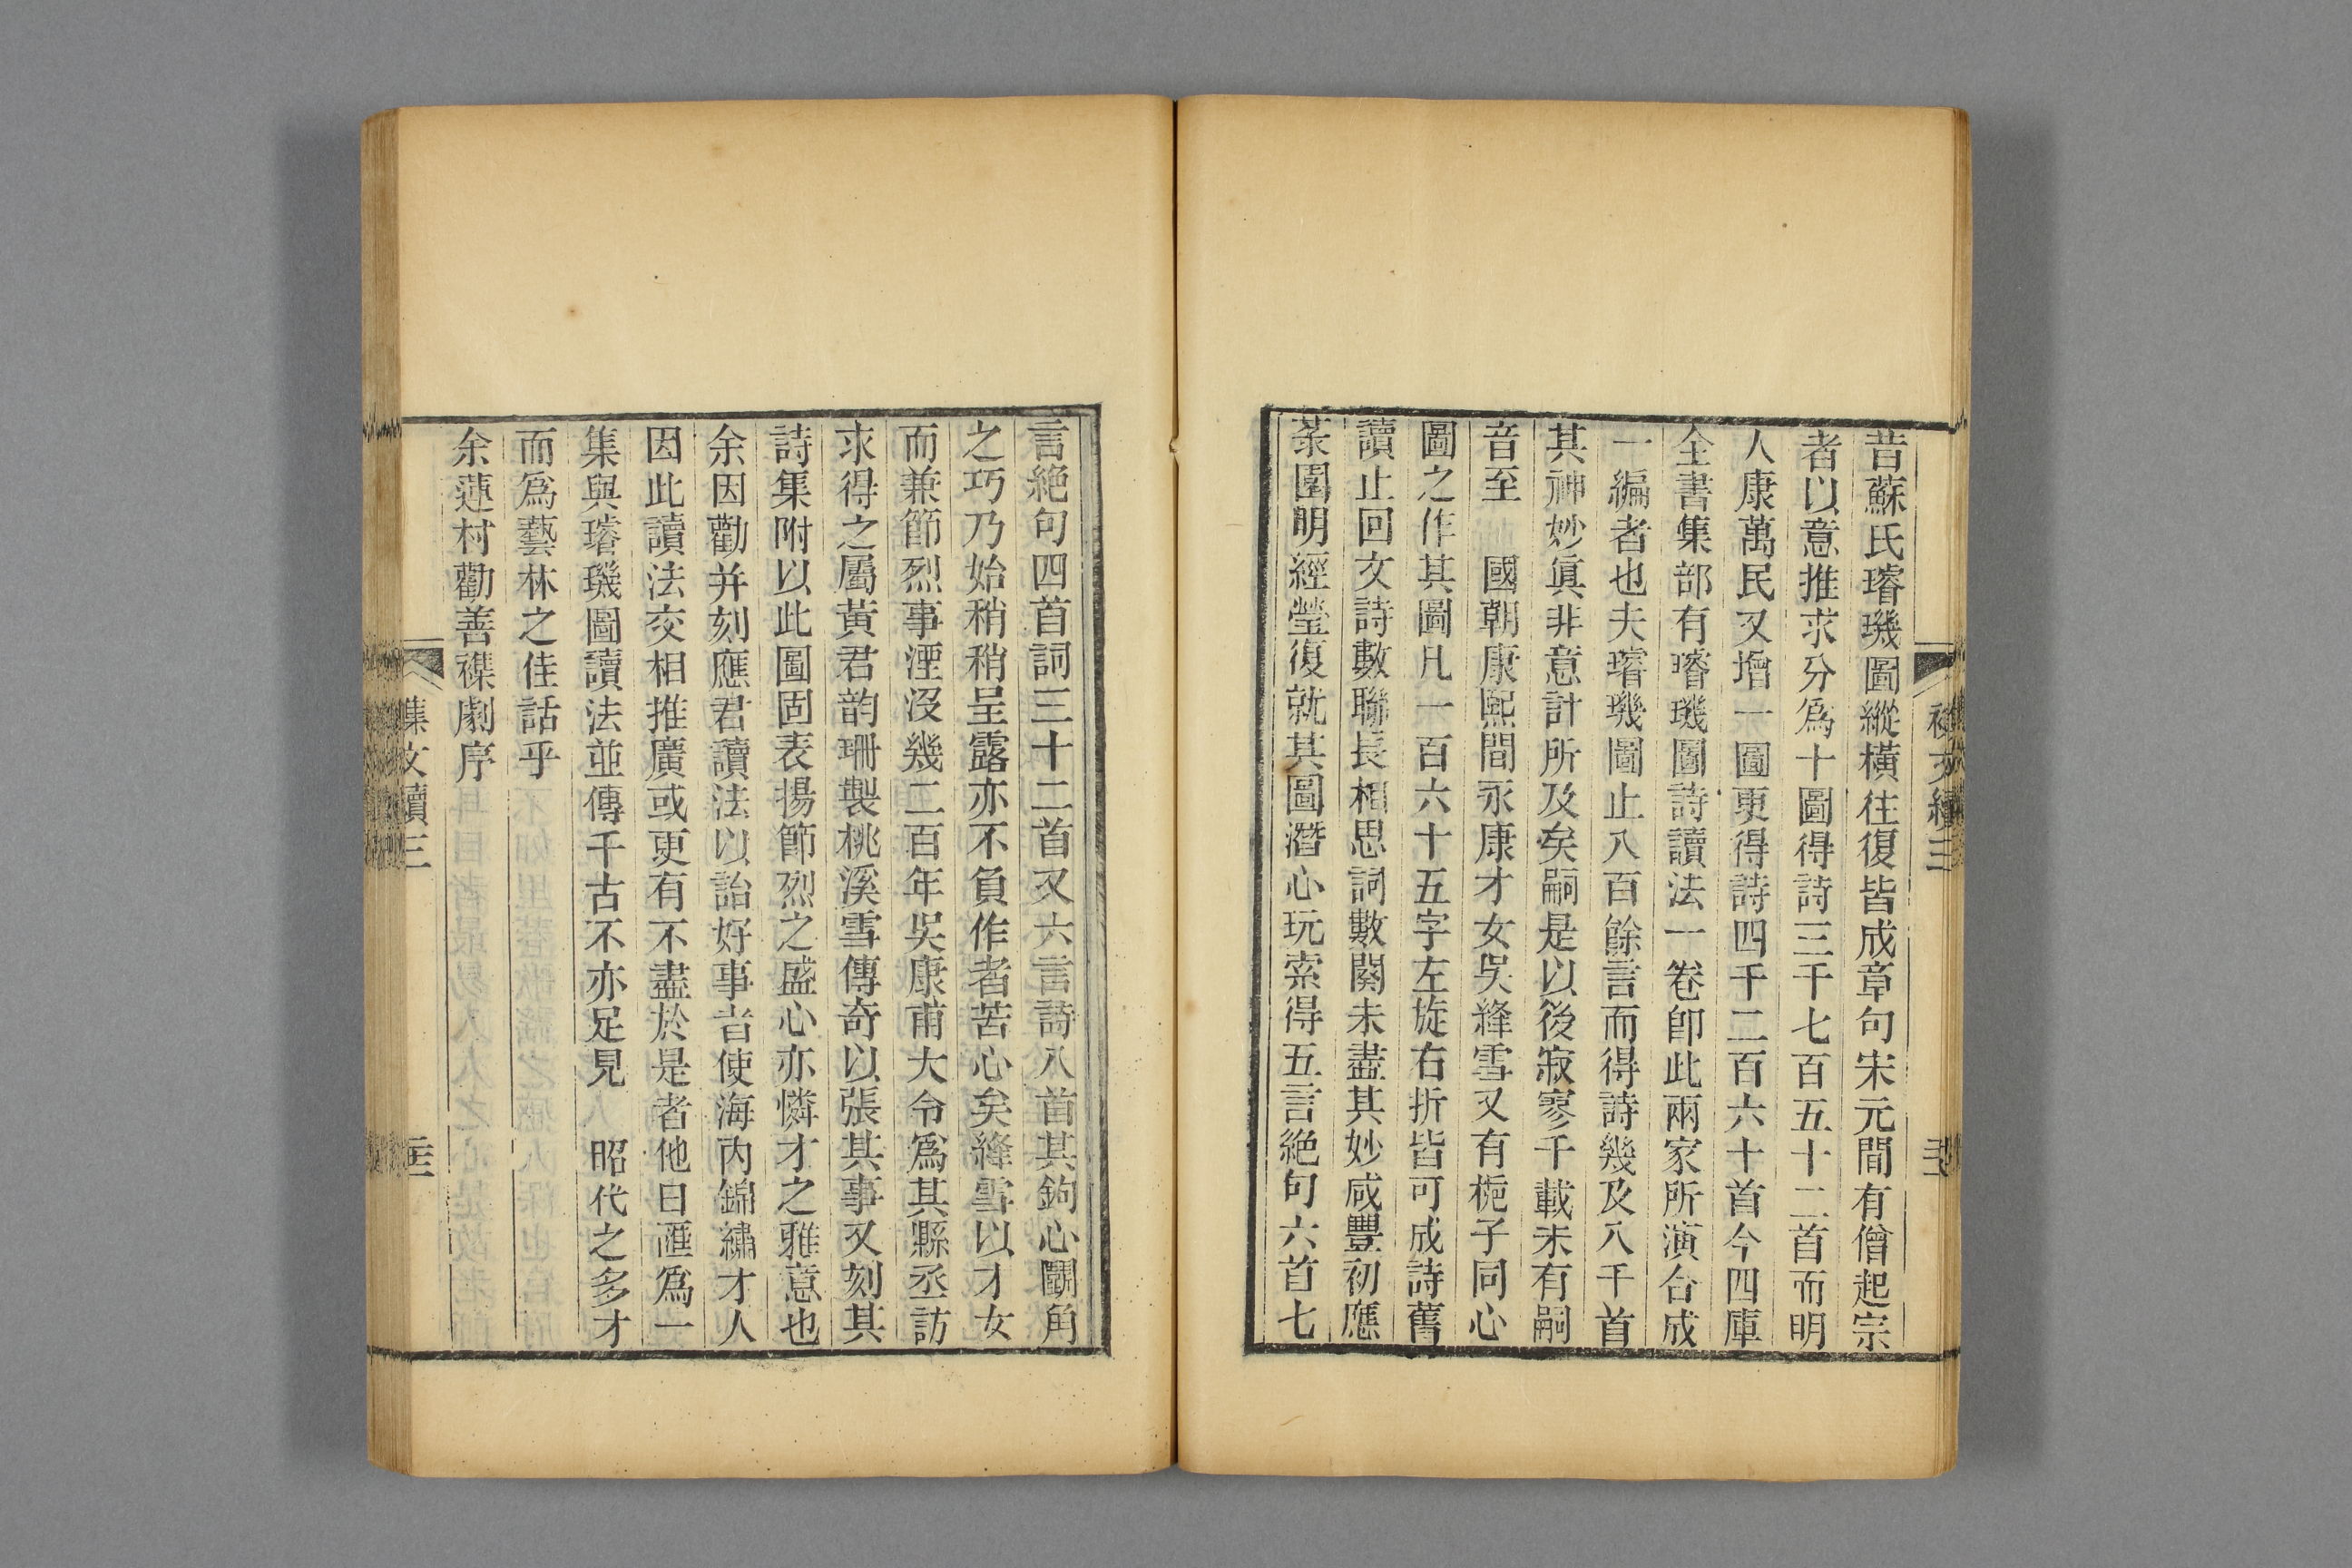 昔蘇氏璿璣圖縱橫往復皆成章句宋元間有僧起宗
者以意推求分爲十圖得詩三千七百五十二首而明
人康萬民又增一圖更得詩四千二百六十首今四庫
全書集部有璿璣圖詩讀法一卷卽此兩家所演合成
一編者也夫璿璣圖止八百餘言而得詩幾及八千首
其神妙眞非意計所及矣嗣是以後寂寥千載未有嗣
音至 國朝康熙間永康才女吳絳雪又有梔子同心
圖之作其圖凡一百六十五字左旋右折皆可成詩舊
讀止回文詩數聯長相思詞數闋未盡其妙咸豐初應
茶園明經瑩復就其圖潛心玩索得五言絶句六首七
言絶句四首詞三十二首又六言詩八首其鉤心鬭角
之巧乃始稍稍呈露亦不負作者苦心矣絳雪以才女
而兼節烈事湮沒幾二百年吳康甫大令爲其縣丞訪
求得之屬黃君韵珊製桃溪雪傳奇以張其事又刻其
詩集附以此圖固表揚節烈之盛心亦憐才之雅意也
余因勸并刻應君讀法以詒好事者使海內錦繡才人
因此讀法交相推廣或更有不盡於是者他日匯爲一
集與璿璣圖讀法並傳千古不亦足見 昭代之多才
而爲藝林之佳話乎
余蓮村勸善襍劇序
文續三